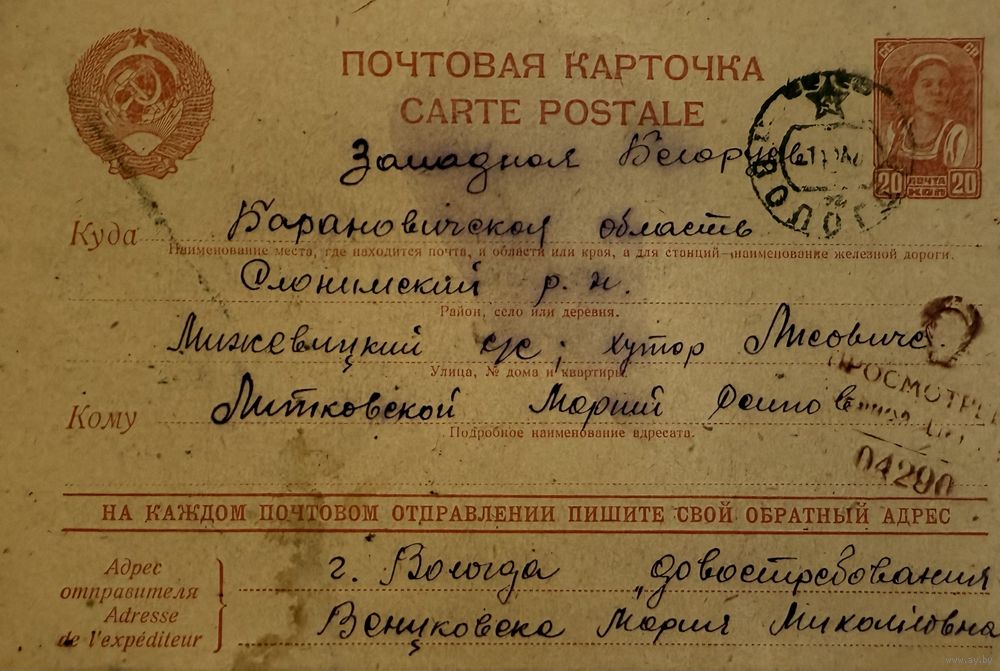 ПОЧТОВАЯ КАРТОЧКА
CARTE POSTALE
СС СР
20 ПОЧТА КОП 20
Западная Белорусь
Куда Барановичская область
Наименование места, где находится почта, и области или края, а для станций—наименование железной дороги.
Слонимский р. н.
Район, село или деревня.
Мижевицкий с/с; хутор Лисовичс
Улица, № дома и квартиры.
Кому Литковской Марий
Подробное наименование адресата.
ПРОСМОТРЕ
04290
НА КАЖДОМ ПОЧТОВОМ ОТПРАВЛЕНИИ ПИШИТЕ СВОЙ ОБРАТНЫЙ АДРЕС
Адрес отправителя
Adresse de l'expéditeur
г. Вологда „довостребования
Венцковска Мария Михаиловна
www.ay.by